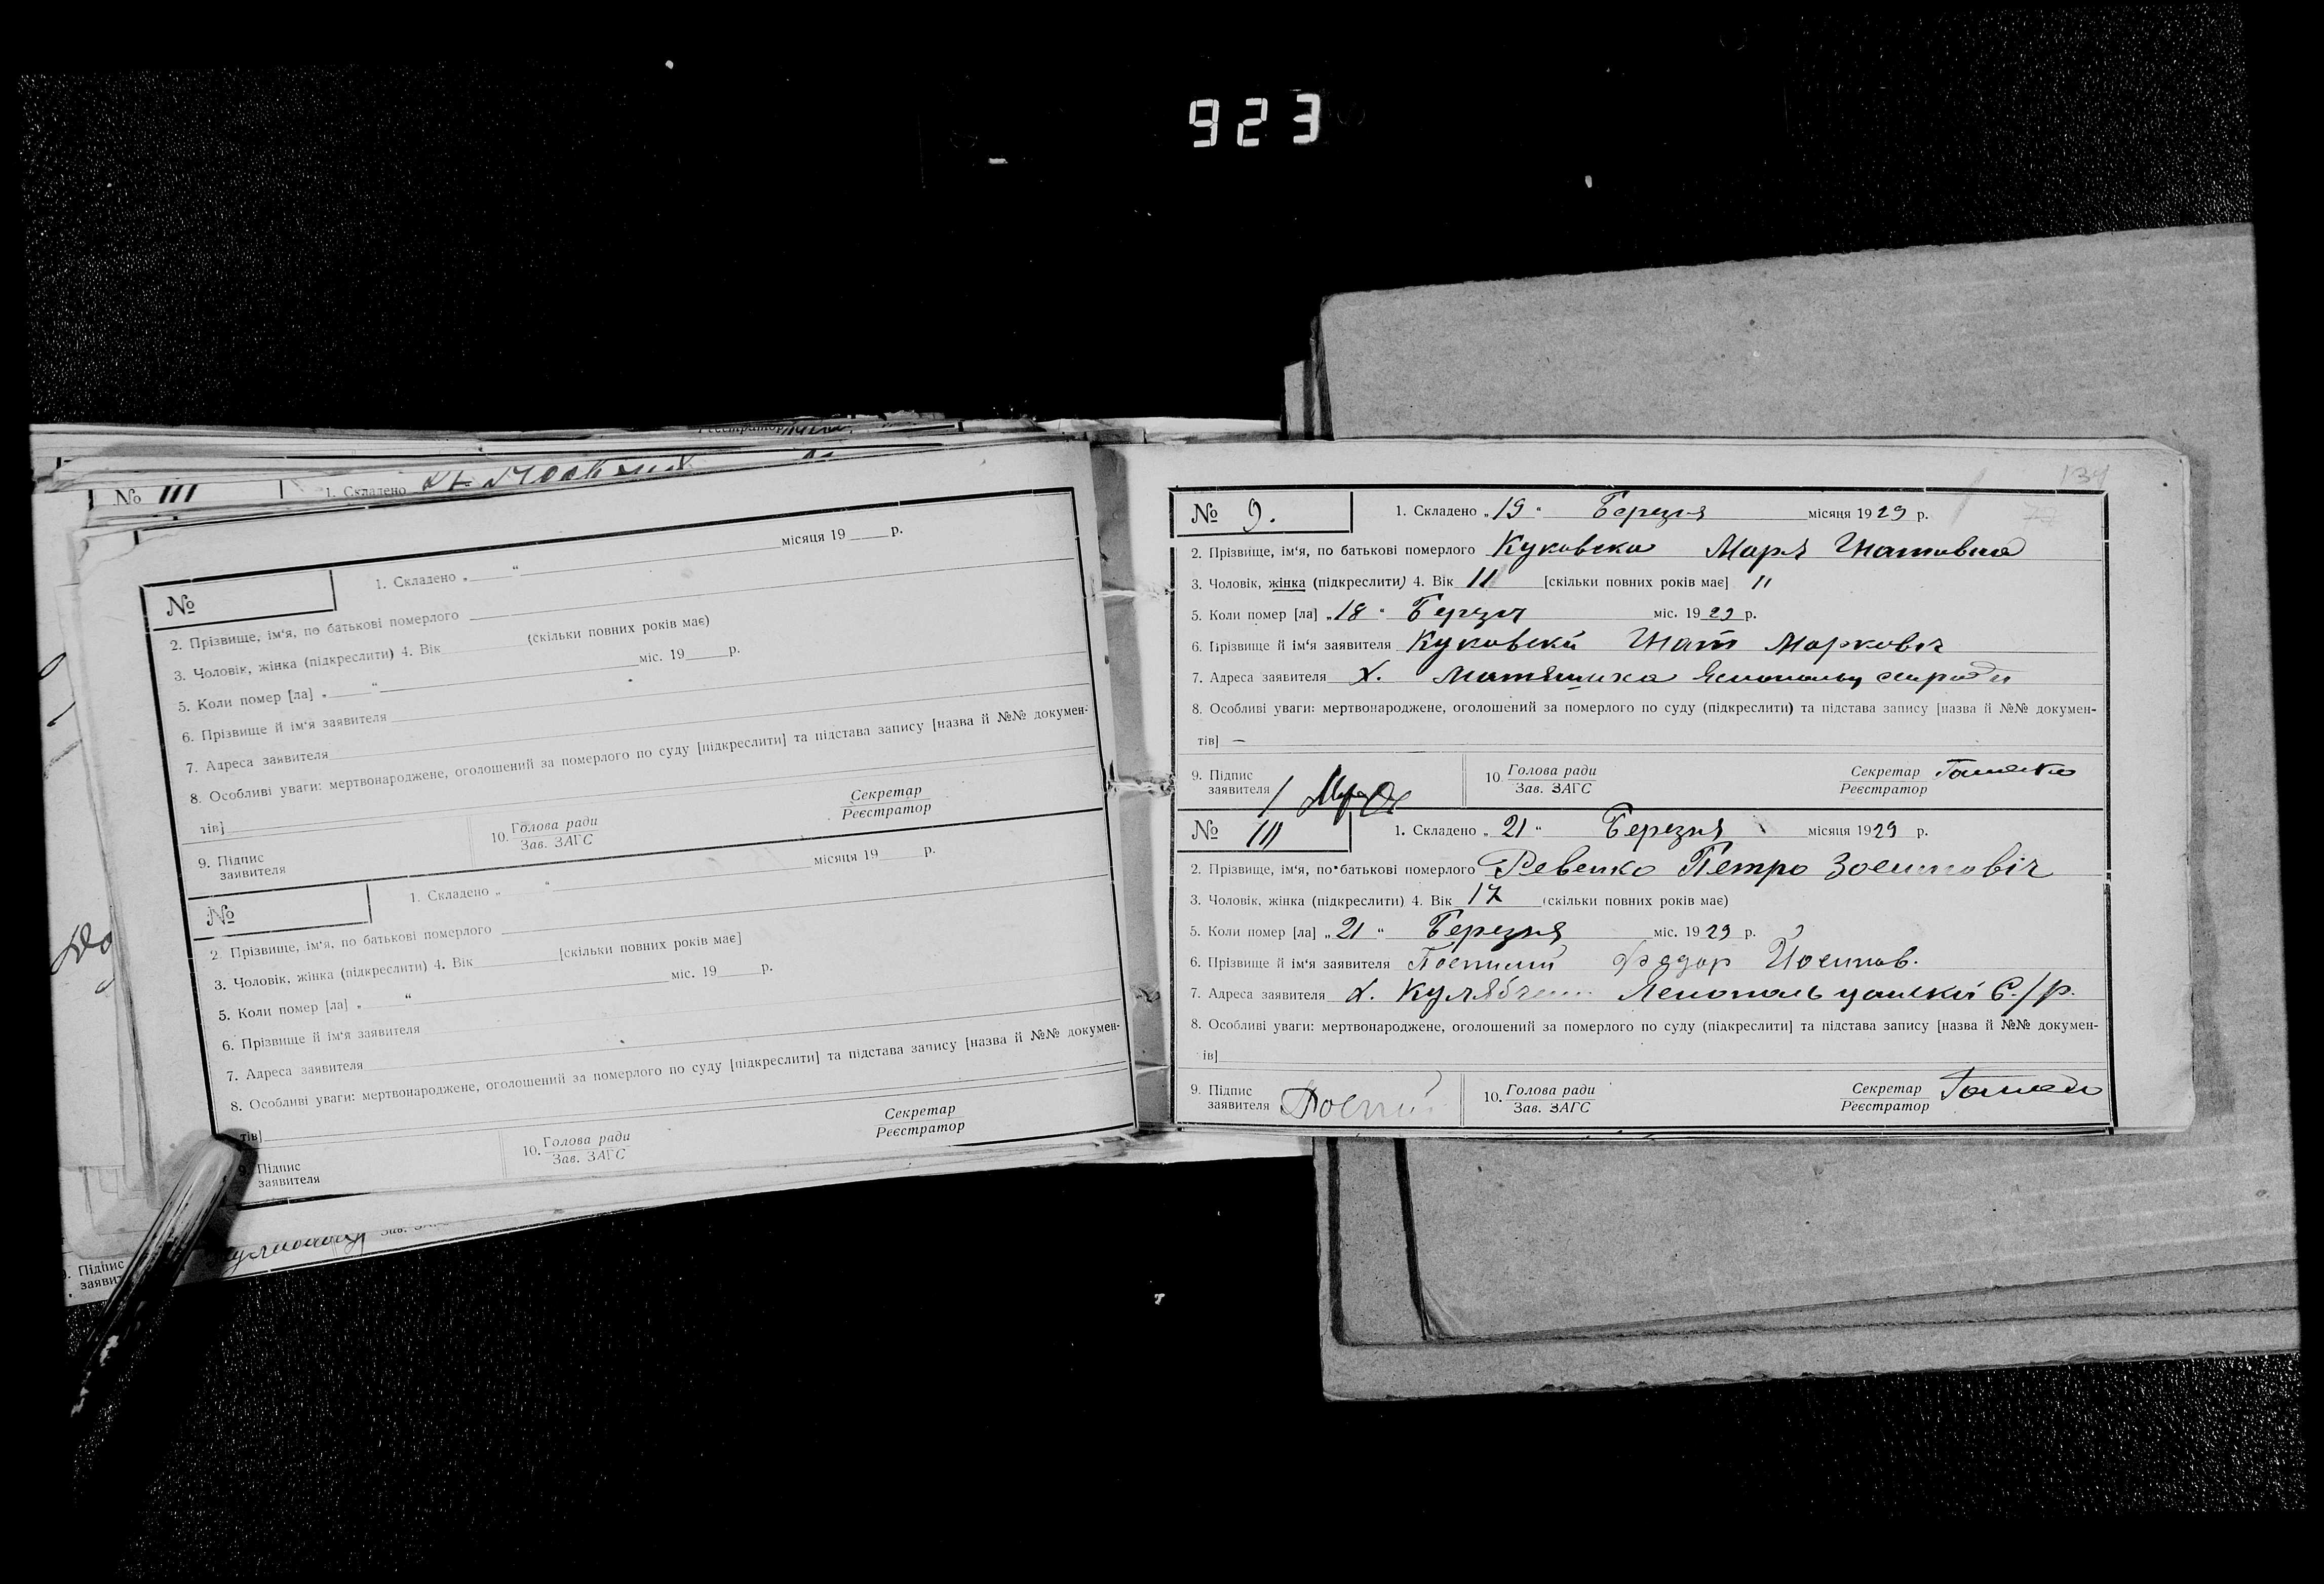 923
№ 111
1. Складено
№
1. Складено „ “ місяця 19 р.
2. Прізвище, ім‘я, по батькові померлого
3. Чоловік, жінка (підкреслити) 4. Вік (скільки повних років має)
5. Коли помер [ла] „ “ міс. 19 р.
6. Прізвище й ім‘я заявителя
7. Адреса заявителя
8. Особливі уваги: мертвонароджене, оголошений за померлого по суду [підкреслити] та підстава запису [назва й №№ докумен-
тів]
9. Підпис заявителя
10. Голова ради
Зав. ЗАГС
Секретар
Реєстратор
№
1. Складено „ “ місяця 19 р.
2. Прізвище, ім‘я, по батькові померлого
3. Чоловік, жінка (підкреслити) 4. Вік [скільки повних років має]
5. Коли помер [ла] „ “ міс. 19 р.
6. Прізвище й ім‘я заявителя
7. Адреса заявителя
8. Особливі уваги: мертвонароджене, оголошений за померлого по суду [підкреслити] та підстава запису [назва й №№ докумен-
тів]
9. Підпис заявителя
10. Голова ради
Зав. ЗАГС
Секретар
Реєстратор
Підпис
134
№ 9. 1. Складено „19“ Березня місяця 1929 р.
2. Прізвище, ім‘я, по батькові померлого Куковска Маря Гнатовна
3. Чоловік, жінка (підкреслити) 4. Вік 11 [скільки повних років має] 11
5. Коли помер [ла] „18“ Березня міс. 1929 р.
6. Прізвище й ім‘я заявителя Куковский Гнат Маркович
7. Адреса заявителя х.
8. Особливі уваги: мертвонароджене, оголошений за померлого по суду (підкреслити) та підстава запису [назва й №№ докумен-
тів] —
9. Підпис заявителя
10. Голова ради
Зав. ЗАГС
Секретар
Реєстратор
№ 111 1. Складено „21“ Березня місяця 1929 р.
2. Прізвище, ім‘я, по батькові померлого Ревенко Петро
3. Чоловік, жінка (підкреслити) 4. Вік 17 (скільки повних років має)
5. Коли помер [ла] „21“ Березня міс. 1929 р.
6. Прізвище й ім‘я заявителя Федор Йосипов.
7. Адреса заявителя х. С./р.
8. Особливі уваги: мертвонароджене, оголошений за померлого по суду (підкреслити] та підстава запису [назва й №№ докумен-
ів]
9. Підпис заявителя
10. Голова ради
Зав. ЗАГС
Секретар
Реєстратор